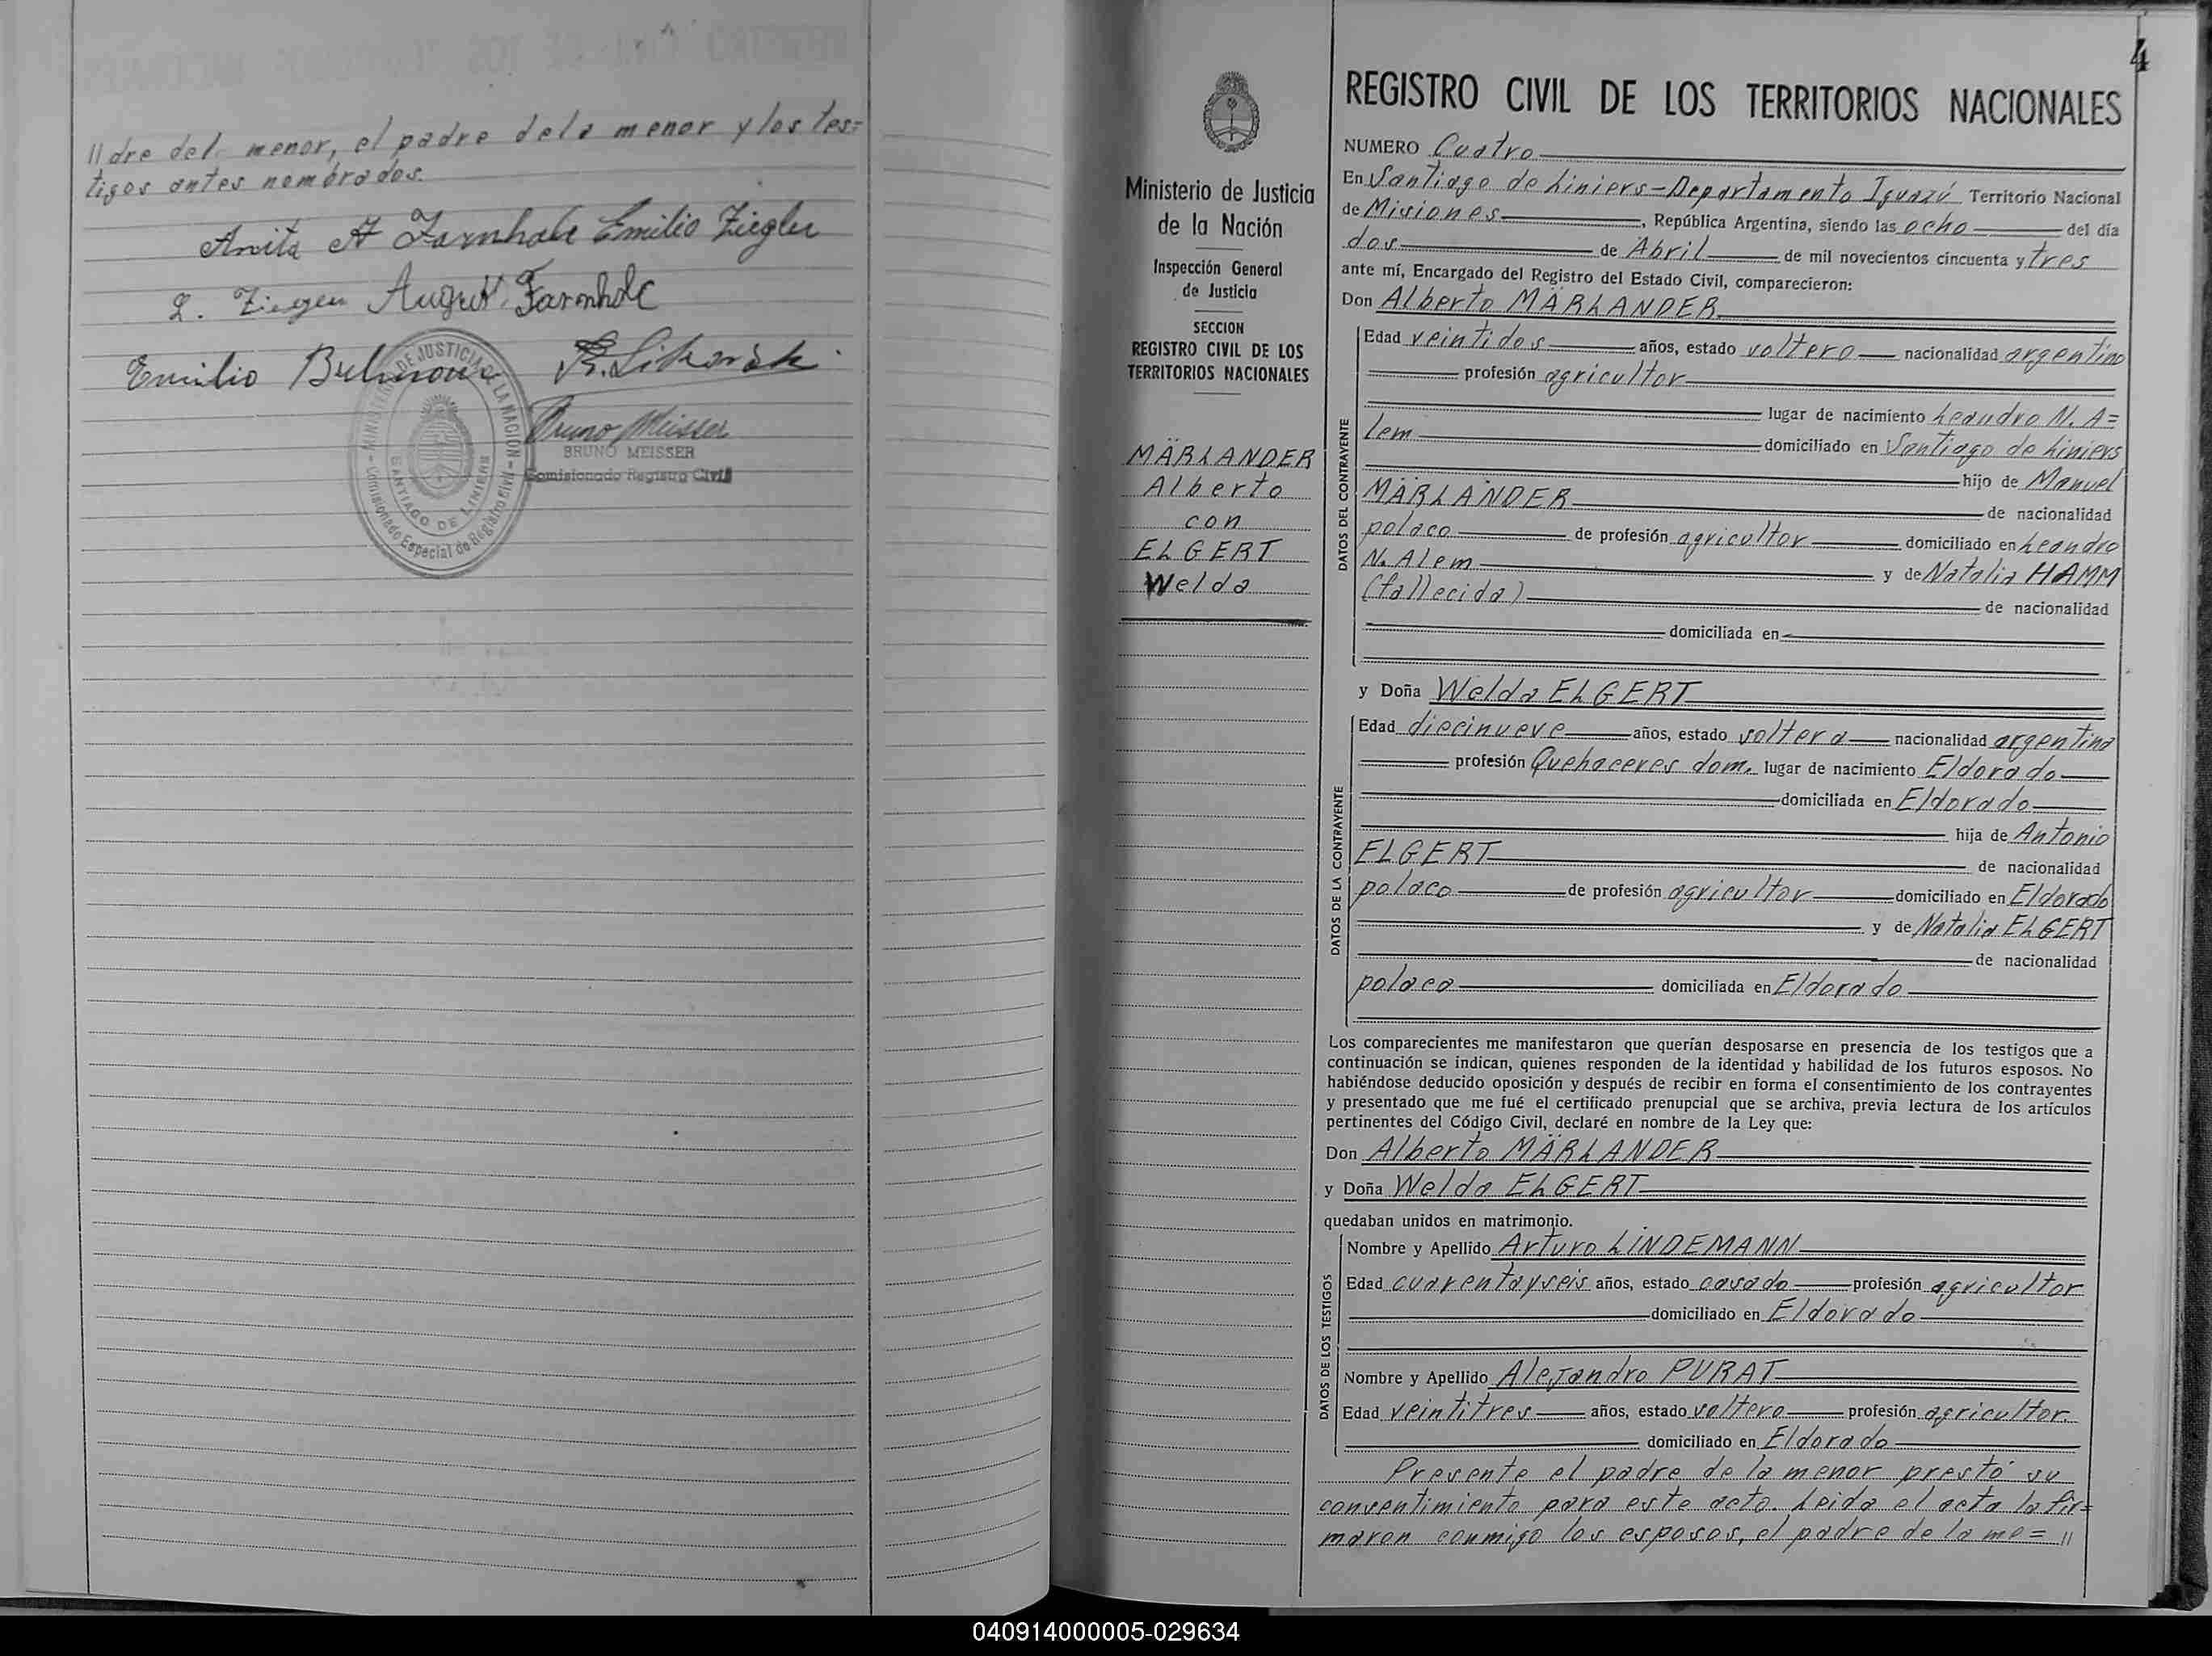 //dre del menor, el padre de la menor y los tes=
tigos antes nombrados.
Anita Emilio Ziegler
August Farnholc
Emilio
MINISTERIO DE JUSTICIA DE LA NACION
SANTIAGO DE LINIERS
Comisionado Especial de Registro Civil
Bruno Meisser
BRUNO MEISSER
Comisionado Registro Civil
4
Ministerio de Justicia
de la Nación
Inspección General
de Justicia
SECCION
REGISTRO CIVIL DE LOS
TERRITORIOS NACIONALES
MÄRLANDER
Alberto
con
ELGERT
Welda
REGISTRO CIVIL DE LOS TERRITORIOS NACIONALES
NUMERO Cuatro
En Santiago de Liniers-Departamento Iguazú Territorio Nacional
de Misiones, República Argentina, siendo las ocho del día
dos de Abril de mil novecientos cincuenta y tres
ante mí, Encargado del Registro del Estado Civil, comparecieron:
Don Alberto MÄRLANDER
DATOS DEL CONTRAYENTE
Edad veintidos años, estado soltero nacionalidad argentino
profesión agricultor
lugar de nacimiento Leandro N. A=
lem
domiciliado en Santiago de Liniers
hijo de Manuel
MÄRLANDER de nacionalidad
polaco de profesión agricultor domiciliado en Leandro
N. Alem y de Natalia HAMM
(fallecida) de nacionalidad
domiciliada en
y Doña Welda ELGERT
DATOS DE LA CONTRAYENTE
Edad diecinueve años, estado soltera nacionalidad argentina
profesión Quehaceres dom. lugar de nacimiento Eldorado
domiciliada en Eldorado
hija de Antonio
ELGERT de nacionalidad
polaco de profesión agricultor domiciliado en Eldorado
y de Natalia ELGERT
de nacionalidad
polaca domiciliada en Eldorado
Los comparecientes me manifestaron que querían desposarse en presencia de los testigos que a
continuación se indican, quienes responden de la identidad y habilidad de los futuros esposos. No
habiéndose deducido oposición y después de recibir en forma el consentimiento de los contrayentes
y presentado que me fué el certificado prenupcial que se archiva, previa lectura de los artículos
pertinentes del Código Civil, declaré en nombre de la Ley que:
Don Alberto MÄRLANDER
y Doña Welda ELGERT
quedaban unidos en matrimonio.
DATOS DE LOS TESTIGOS
Nombre y Apellido Arturo LINDEMANN
Edad cuarentayseis años, estado casado profesión agricultor
domiciliado en Eldorado
Nombre y Apellido Alejandro PURAT
Edad veintitres años, estado soltero profesión agricultor.
domiciliado en Eldorado
Presente el padre de la menor prestó su
consentimiento para este acto. Leida el acta la fir=
maron conmigo los esposos, el padre de la me= //
040914000005-029634